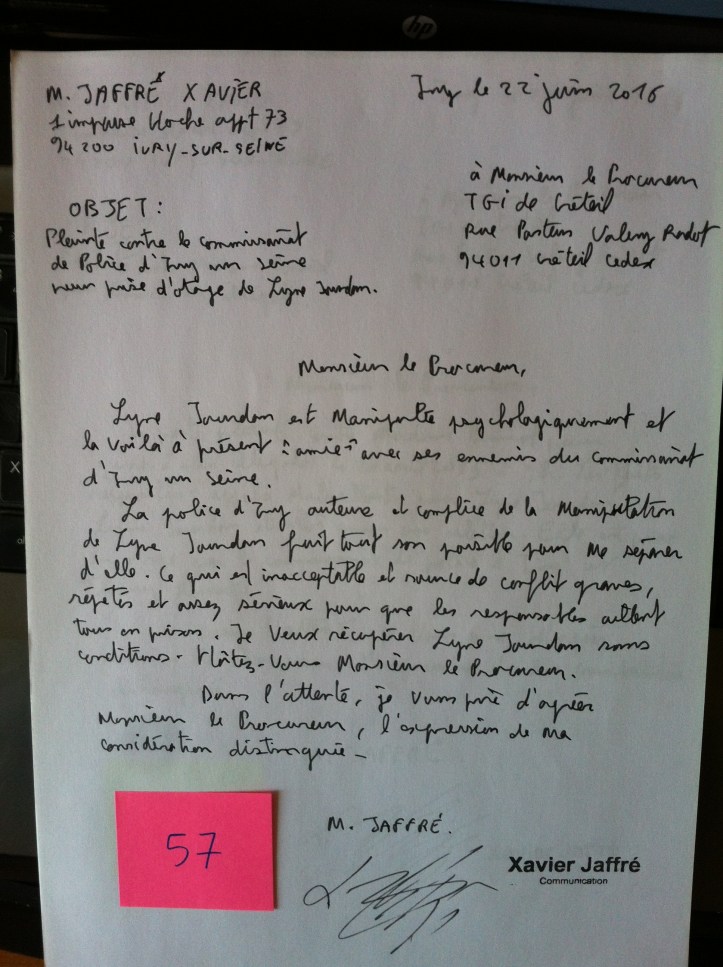 hp
M. JAFFRÉ XAVIER
1 impasse Hoche appt 73
94200 IVRY-SUR-SEINE
Ivry le 22 juin 2016
à Monsieur le Procureur
TGI de Créteil
Rue Pasteur Valery Radot
94011 Créteil Cedex
OBJET:
Plainte contre le commissariat
de Police d'Ivry sur Seine
pour prise d'otage de Lyne Jourdon.
Monsieur le Procureur,
Lyne Jourdon est manipulée psychologiquement et
la voilà à présent "amie" avec ses ennemis du commissariat
d'Ivry sur Seine.
La police d'Ivry auteure et complice de la manipulation
de Lyne Jourdon fait tout son possible pour me séparer
d'elle. Ce qui est inacceptable et source de conflit graves,
répétés et assez sérieux pour que les responsables aillent
tous en prison. Je veux récupérer Lyne Jourdon sans
conditions. Hâtez-Vous Monsieur le Procureur.
Dans l'attente, je vous prie d'agréer
Monsieur le Procureur, l'expression de ma
considération distinguée -
M. JAFFRÉ.
57
Xavier Jaffré
Communication